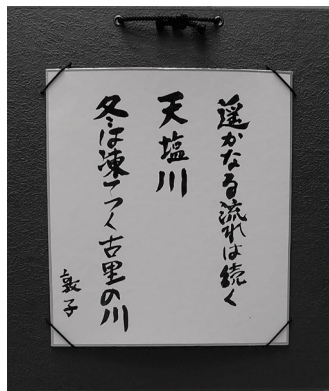 遥かなる流れは続く
天塩川
冬は凍てつく古里の川
敦子